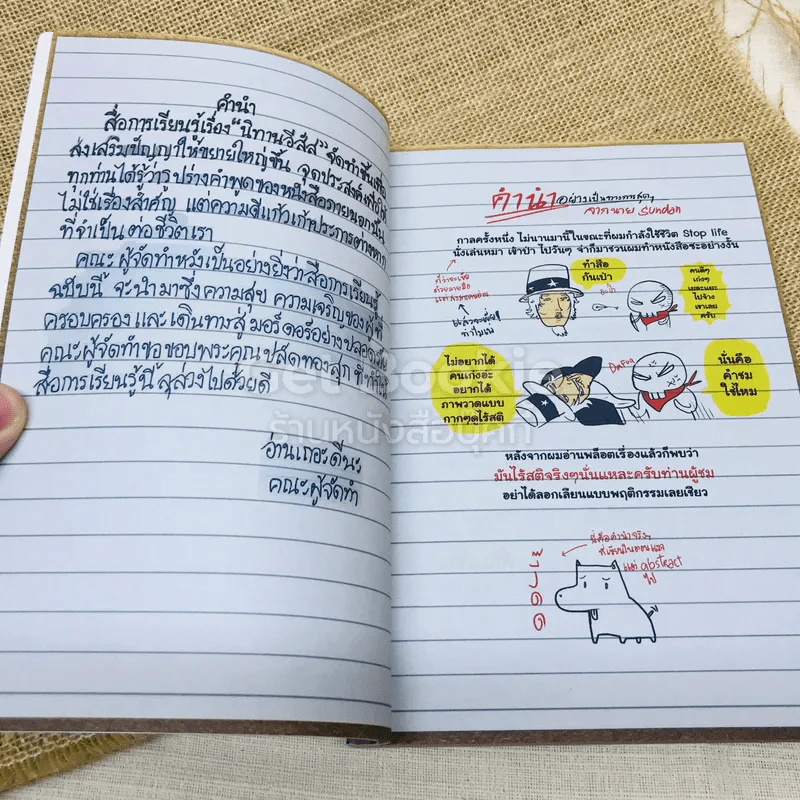 คำนำ
สื่อการเรียนรู้เรื่อง "นิทานอีสัส" จัดทำขึ้นเพื่อ
ส่งเสริมปัญญาให้ขยายใหญ่ขึ้น จุดประสงค์เพื่อให้
ทุกท่านได้รู้ว่ารูปร่างคำพูดของหนังสือภายนอกนั้น
ไม่ใช่เรื่องสำคัญ แต่ความดีแก้วเก้าประการต่างหาก
ที่จำเป็นต่อชีวิตเรา
คณะผู้จัดทำหวังเป็นอย่างยิ่งว่าสื่อการเรียนรู้
ฉบับนี้ จะนำมาซึ่งความสุข ความเจริญของผู้ที่
ครอบครอง และเดินทางสู่มอร์ดอร์อย่างปลอดภัย
คณะผู้จัดทำขอขอบพระคุณปลัดทองสุก ที่ทำให้
สื่อการเรียนรู้นี้ลุล่วงไปด้วยดี
อ่านเถอะดีนะ
คณะผู้จัดทำ
คำนำ อย่างเป็นทางการสุดๆ
จากนาย Sundan
กาลครั้งหนึ่ง ไม่นานมานี้ในขณะที่ผมกำลังใช้ชีวิต Stop life
นั่งเล่นหมา เข้าป่า ไปวันๆ จ่าก็มาชวนผมทำหนังสือซะอย่างงั้น
ทำสือ
กันเป่า
คนดีๆ
เก่งๆ
เยอะแยะ
ไปจ้าง
เขาเลย
ครับ
ไม่อยากได้
คนเก่งอะ
อยากได้
ภาพวาดแบบ
กากๆดูไร้สติ
นั่นคือ
คำชม
ใช่ไหม
หลังจากผมอ่านพล็อตเรื่องแล้วก็พบว่า
มันไร้สติจริงๆนั่นแหละครับท่านผู้ชม
อย่าได้ลอกเลียนแบบพฤติกรรมเลยเชียว
นี่คือคำนำจริงๆ
แต่ abstract
ไป
Get Bookie
ร้านหนังสือบุ๊คกี้